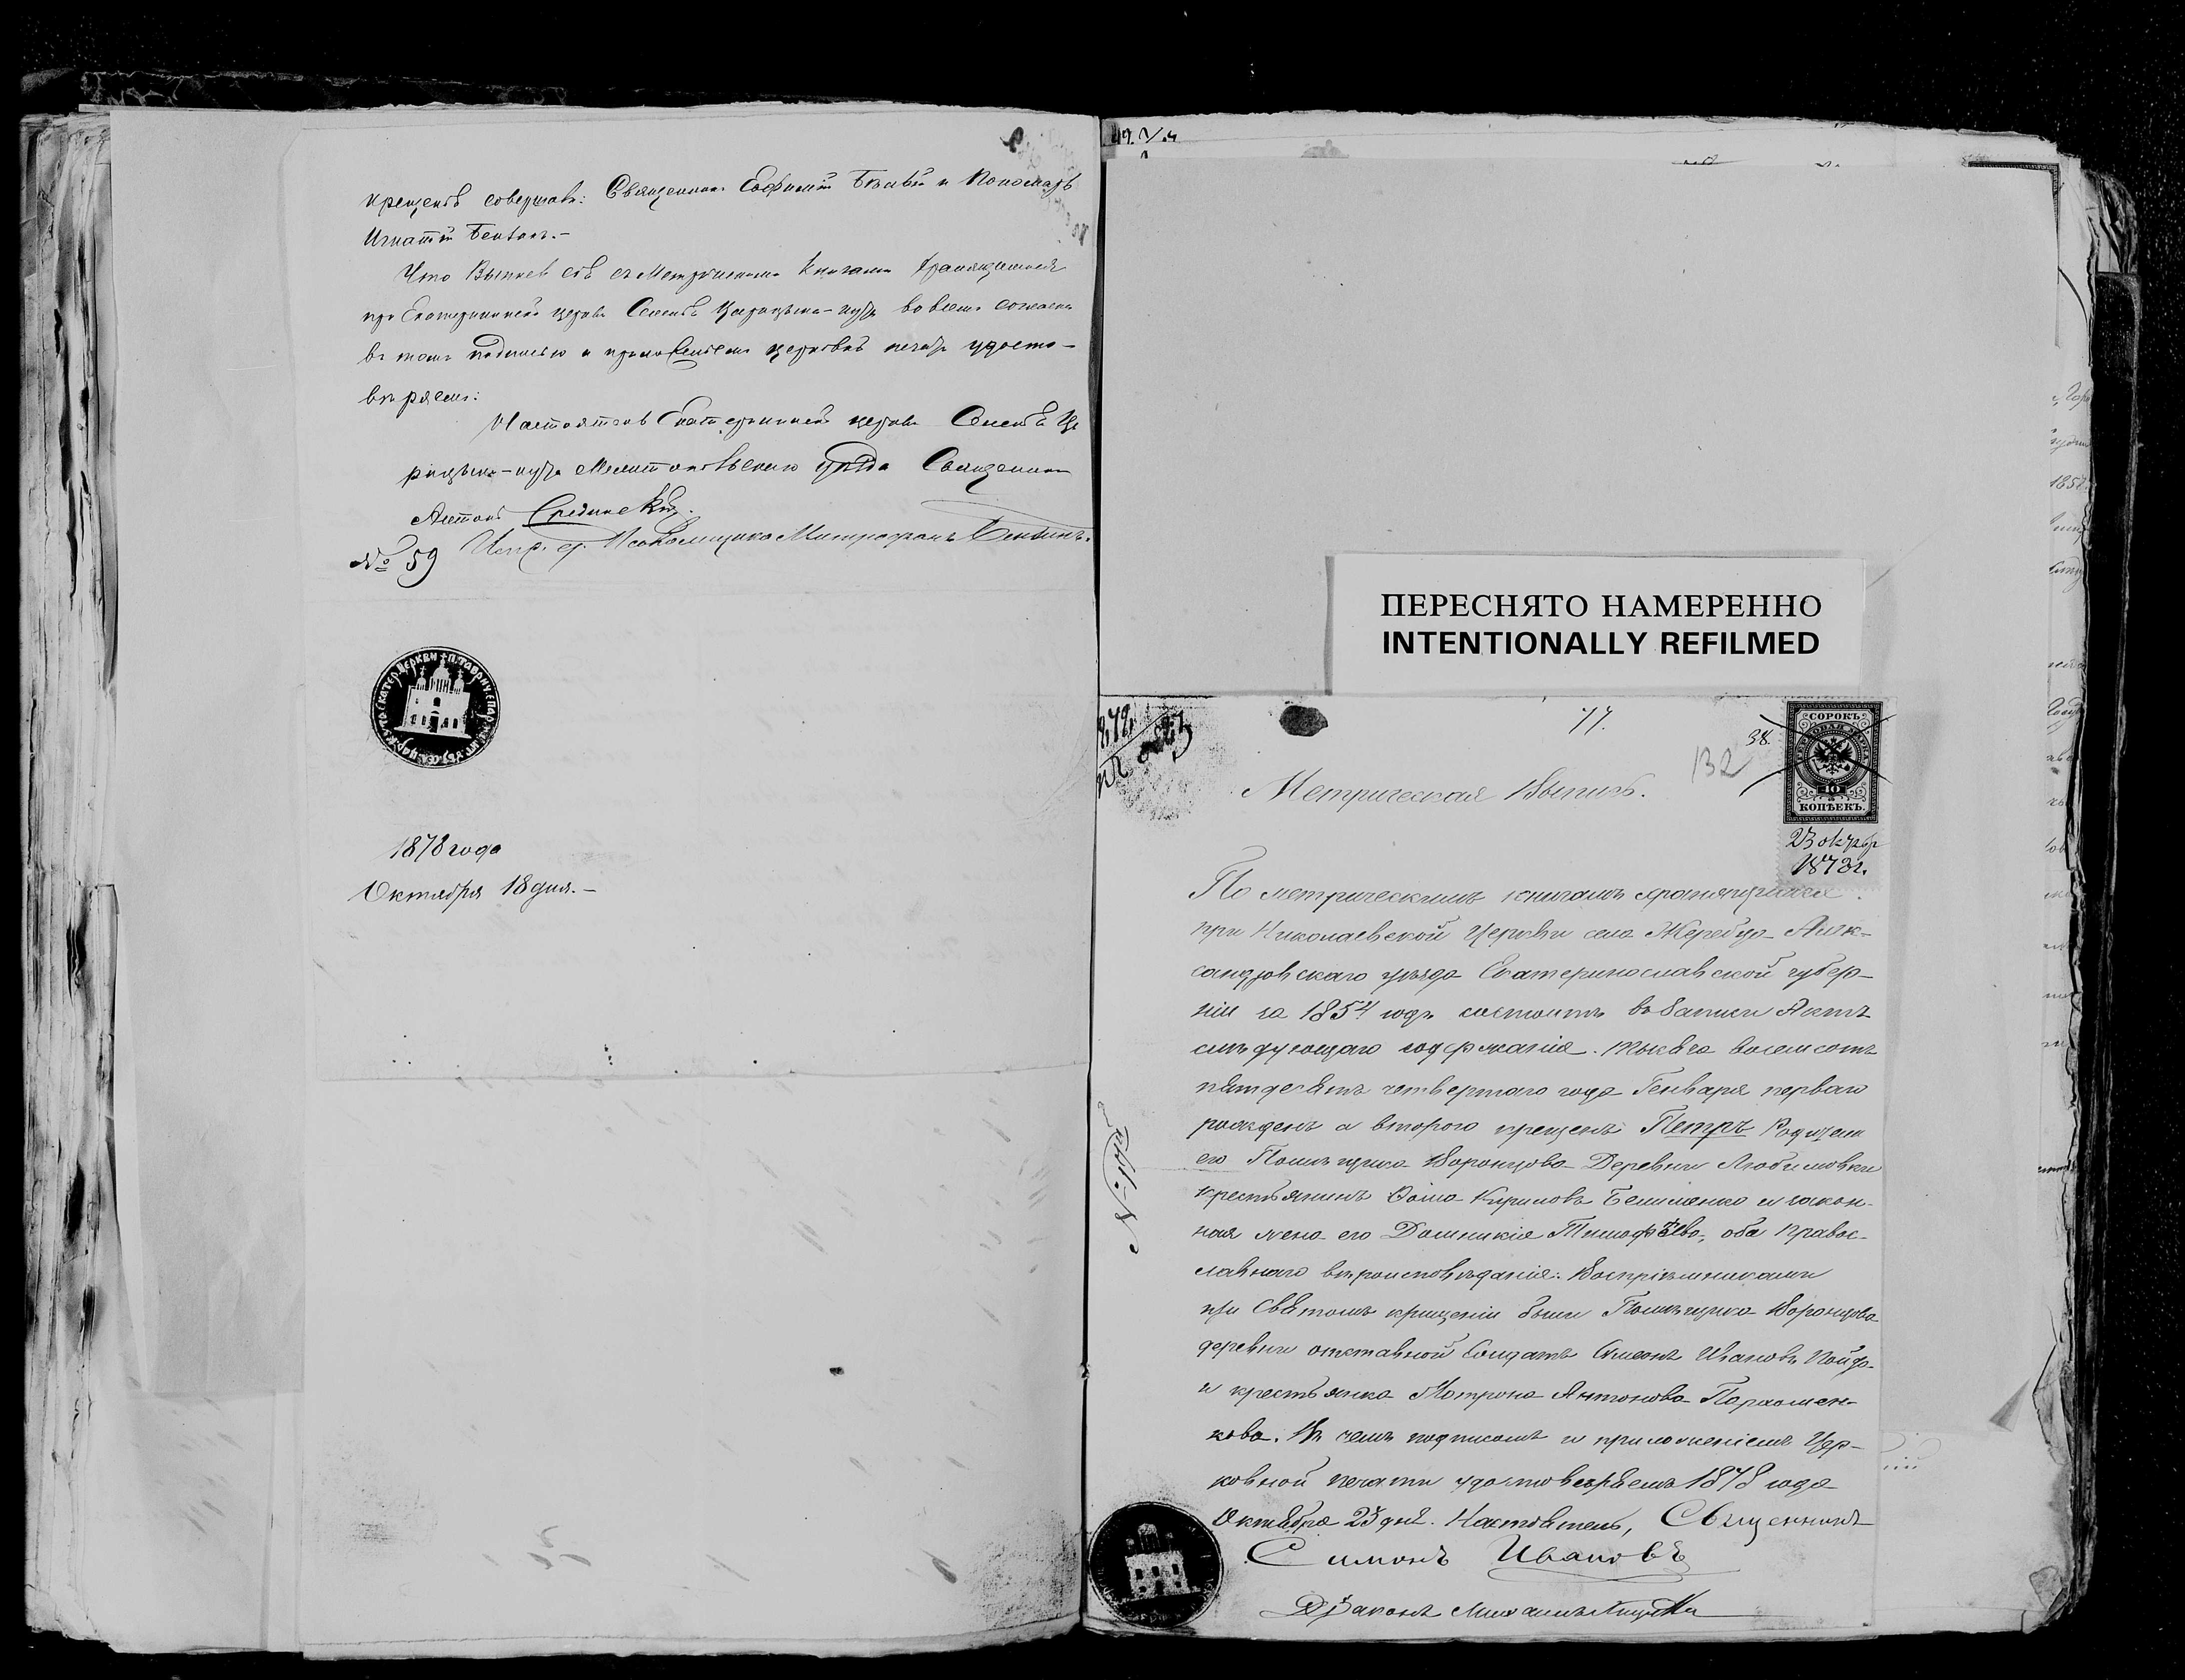 крещенія совершалъ: Священникъ Евфимій Бѣлый и Пономарь
Игнатій
Что Выпись сія съ Метрическими Книгами хранящимися
при Екатерининской церкви Селенія Царицына-кута во всемъ согласна
въ томъ подписью и приложеніемъ церковной печати удосто-
вѣряемъ:
Настоятель Екатерининской церкви Селенія Ца
рицына-кута Мелитопольскаго уѣзда Священникъ
Антоній Срединскій.
Испр. д. Псаломщика Митрофанъ
№ 59
1878 года
Октября 18 дня.-
ПЕРЕСНЯТО НАМЕРЕННО
INTENTIONALLY REFILMED
77.
38.
132
СОРОКЪ
40
КОПѢЕКЪ.
Метрическая Выпись.
23 октября
1878г.
По метрическимъ книгамъ хранящимся
при Николаевской Церкви села Жеребца Алек-
сандровскаго уѣзда Екатеринославской губер-
ніи за 1854 годъ состоитъ въ записи Актъ
слѣдующаго содержанія. Тысяча восемсотъ
пятдесятъ четвертаго года Генваря перваго
рожденъ а втораго крещенъ Петръ Родители
его Помѣщика Воронцова Деревни Любимовки
крестьянинъ Кириловъ и закон-
ная жена его Домникія Тимофѣева, оба правос-
лавнаго вѣроисповѣданія: Воспріемниками
при Святомъ крещеніи были Помѣщика Воронцова
деревни отставной Солдатъ Симеонъ Ивановъ
и крестьянка Матрона Антонова Пархомен-
кова. Въ чемъ подписомъ и приложеніемъ Цер-
ковной печати удостовѣряемъ 1878 года
Октября 23 дня. Настоятель, Священникъ
Симонъ Ивановъ
Діаконъ Михаилъ